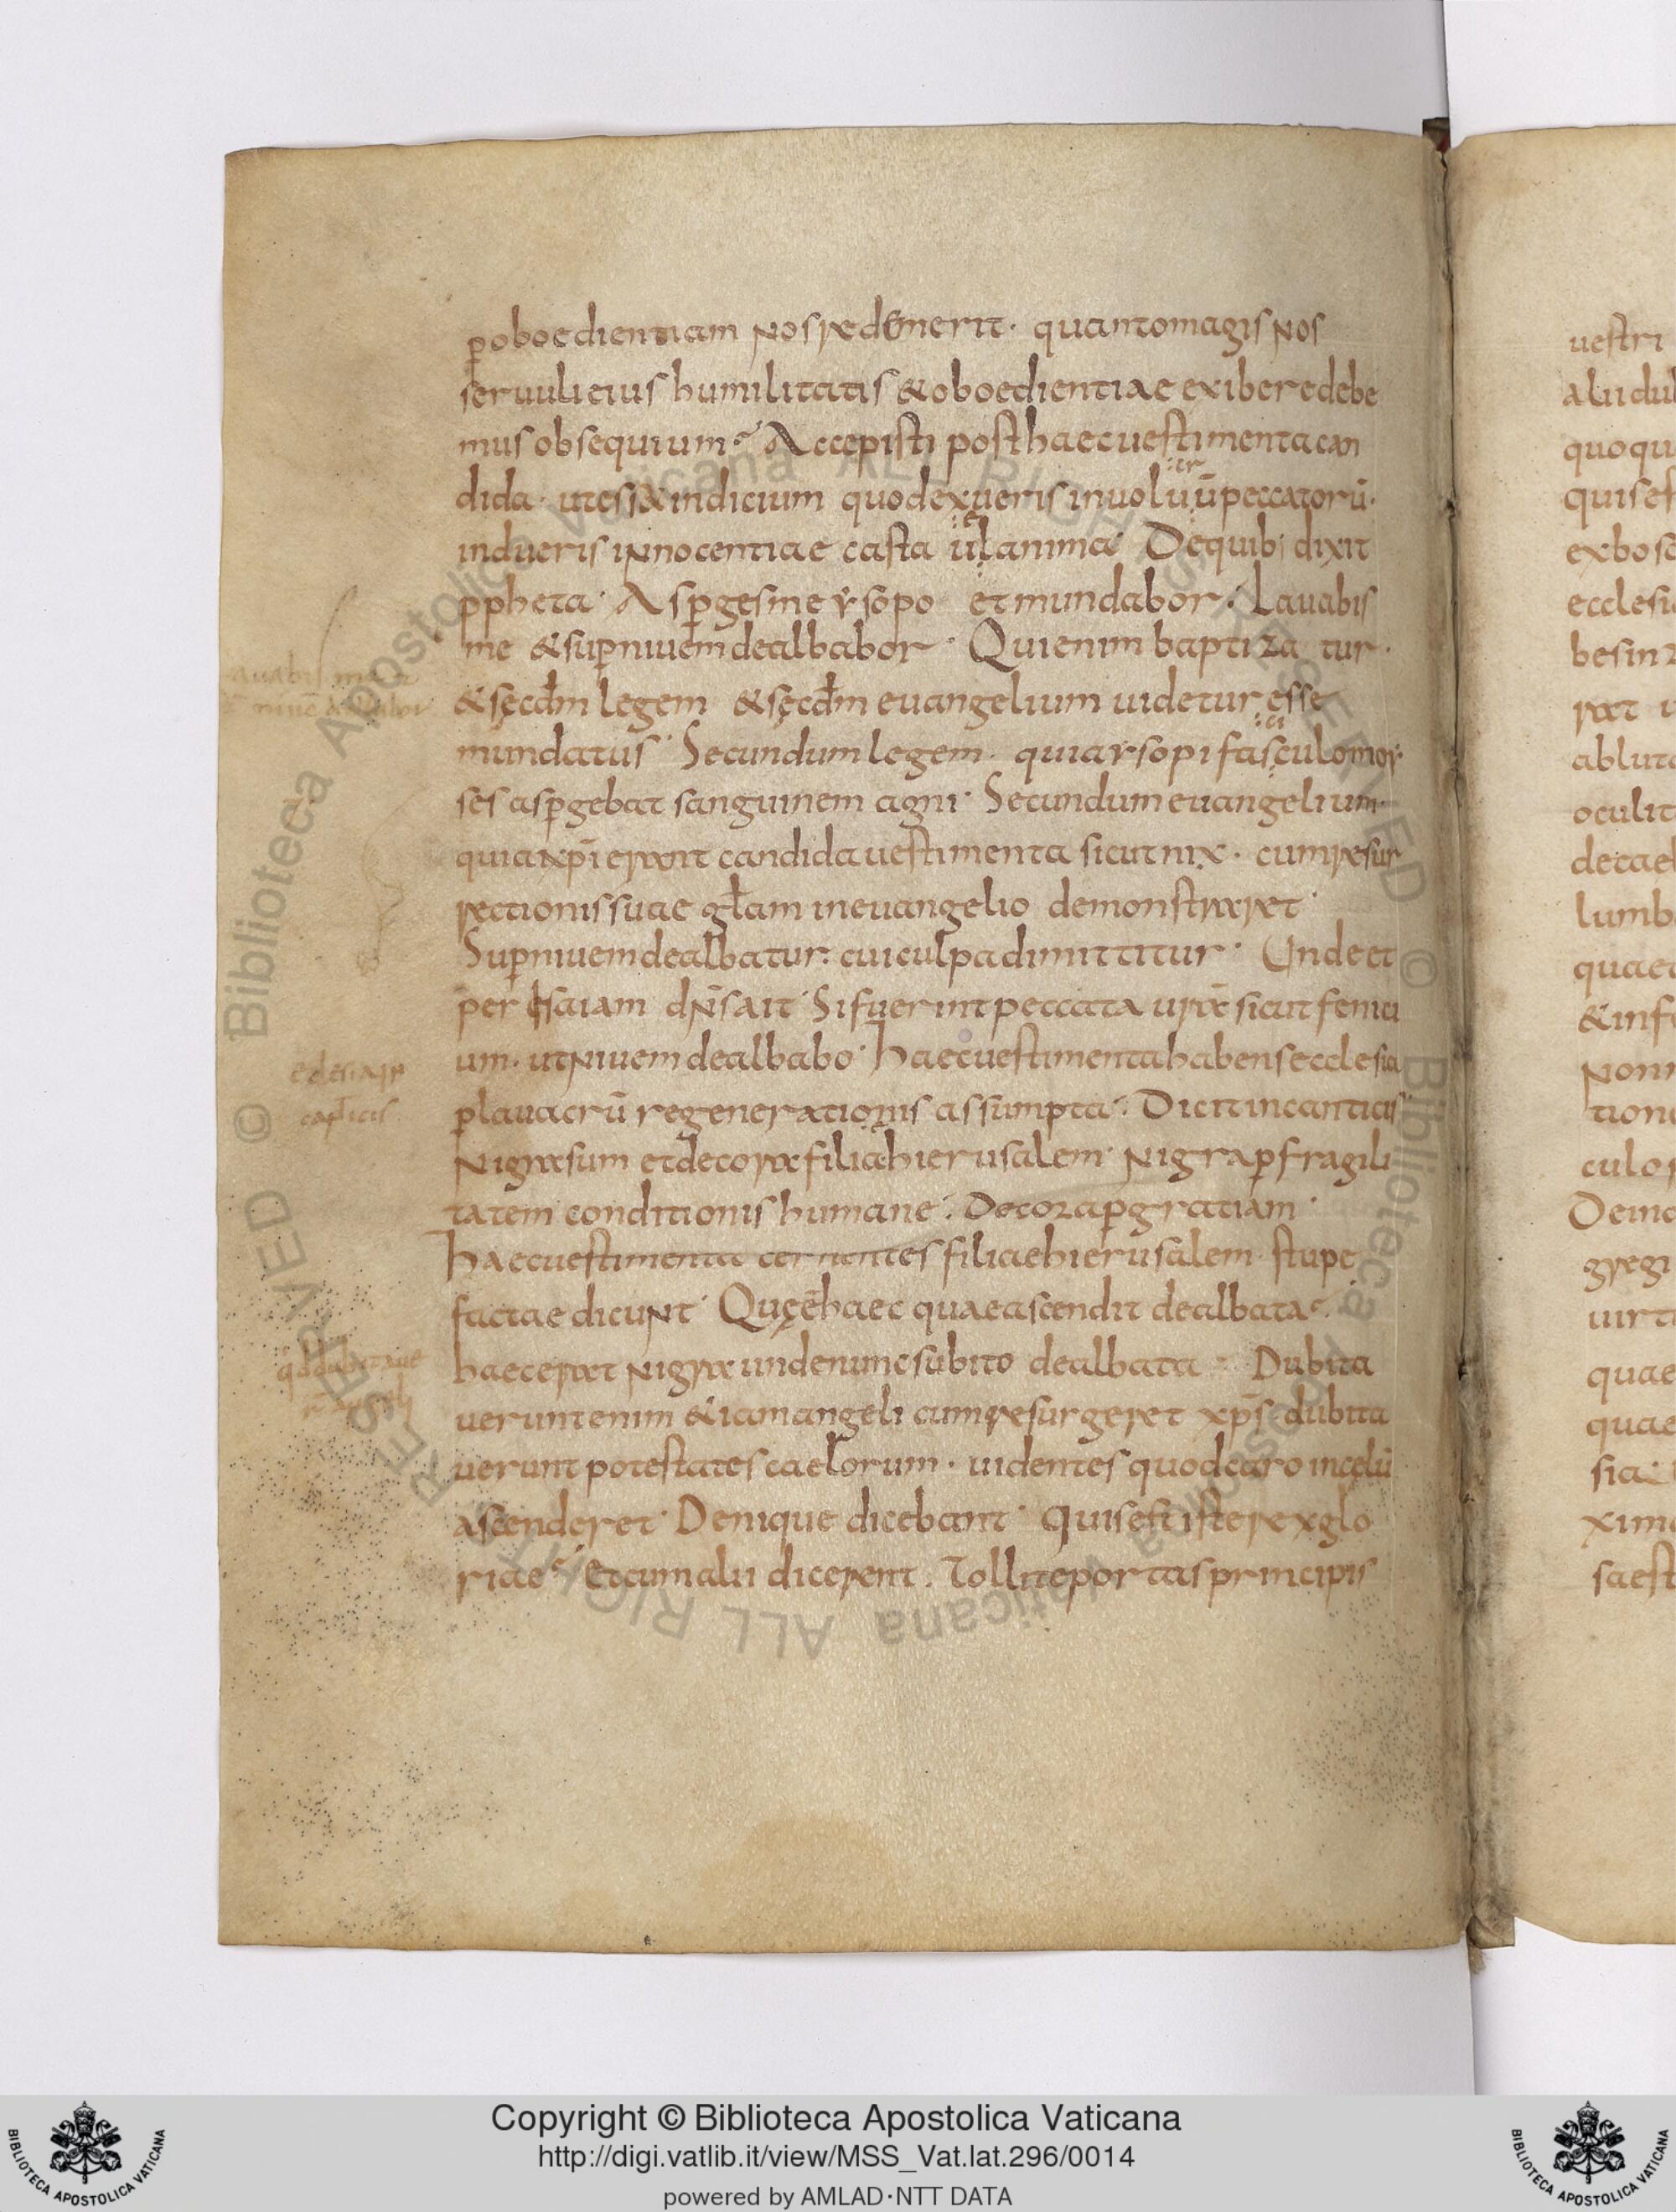 ꝑoboedientiam nos redemerit· quantomagis nos
seruulieius humilitatis &oboedientiae exiberedebe
mus obsequium? Accepisti posthaecuestimentacan
dida· utess& indicium quodexueris inuoluūpeccatorū·
indueris innocentiae casta ulamina· Dequib; dixit
ppheta· Asꝑgesme ysopo et mundabor· Lauabis
me &suꝑniuem dealbabor· Quienim baptizatur·
&sęcdm legem &sęcdm euangelium uidetur esse
mundatus· Secundum legem· quia ysopi fasculo moy
ses asꝑgebat sanguinem agni· Secundum euangelium·
quia xpi erant candida uestimenta sicut nix· cum resur
rectionis suae glam ineuangelio demonstraret·
Suꝑniuemdealbatur· cui culpa dimittitur· Unde et
per esaiam dns ait· Si fuerint peccata ura sicut fenici
um· utniuem dealbabo· Haecuestimentahabensecclesia
ꝑlauacrū regenerationis assumpta· Dicitincanticis·
Nigrasum etdecora filiaehierusalem· Nigraꝑfragili
tatem conditionis humane· Decoraꝑgratiam·
Haecuestimenta cernentes filiaehierusalem· stupe
factae dicunt· Quęē haec quaeascendit dealbata?
haecerat nigra undenuncsubito dealbata· Dubita
ueruntenim &iamangeli cumresurgeret xps· dubita
uerunt potestates caelorum· uidentes quodcaro incęlū
ascenderet· Denique dicebant· Quisest iste rex glo
riae? Et cum alii dicerent· Tolliteportasprincipis
uestri
alii du
quoqu
quises
ecclesi
besin
abluta
oculit
decae
lumb
quaet
&inf
Non
tion
culo
Demo
quae
quae
xim
saest
BIBLIOTECA APOSTOLICA VATICANA
Copyright © Biblioteca Apostolica Vaticana
http://digi.vatlib.it/view/MSS_Vat.lat.296/0014
powered by AMLAD·NTT DATA
BIBLIOTECA APOSTOLICA VATICANA